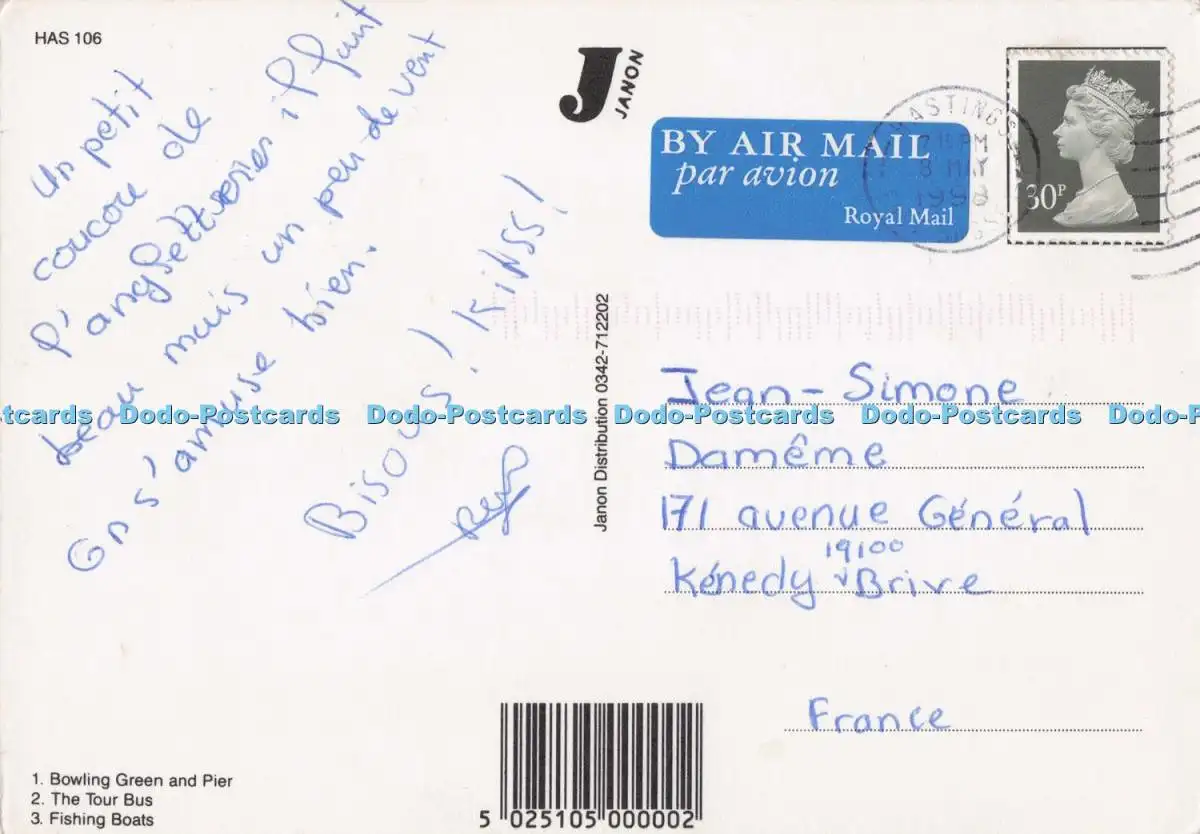 HAS 106
Un petit
coucou de
l'anglettweries il fait
beau mais un peu de vent
On s'amuse bien.
Bisous! kiss!
J
JANON
BY AIR MAIL
par avion
Royal Mail
HASTINGS
PM
8 MAY
30P
Janon Distribution 0342-712202
Jean-Simone
Damême
171 avenue Général
19100
Kénedy Brive
France
Dodo-Postcards Dodo-Postcards Dodo-Postcards Dodo-Postcards
1. Bowling Green and Pier
2. The Tour Bus
3. Fishing Boats
5 025105 000002